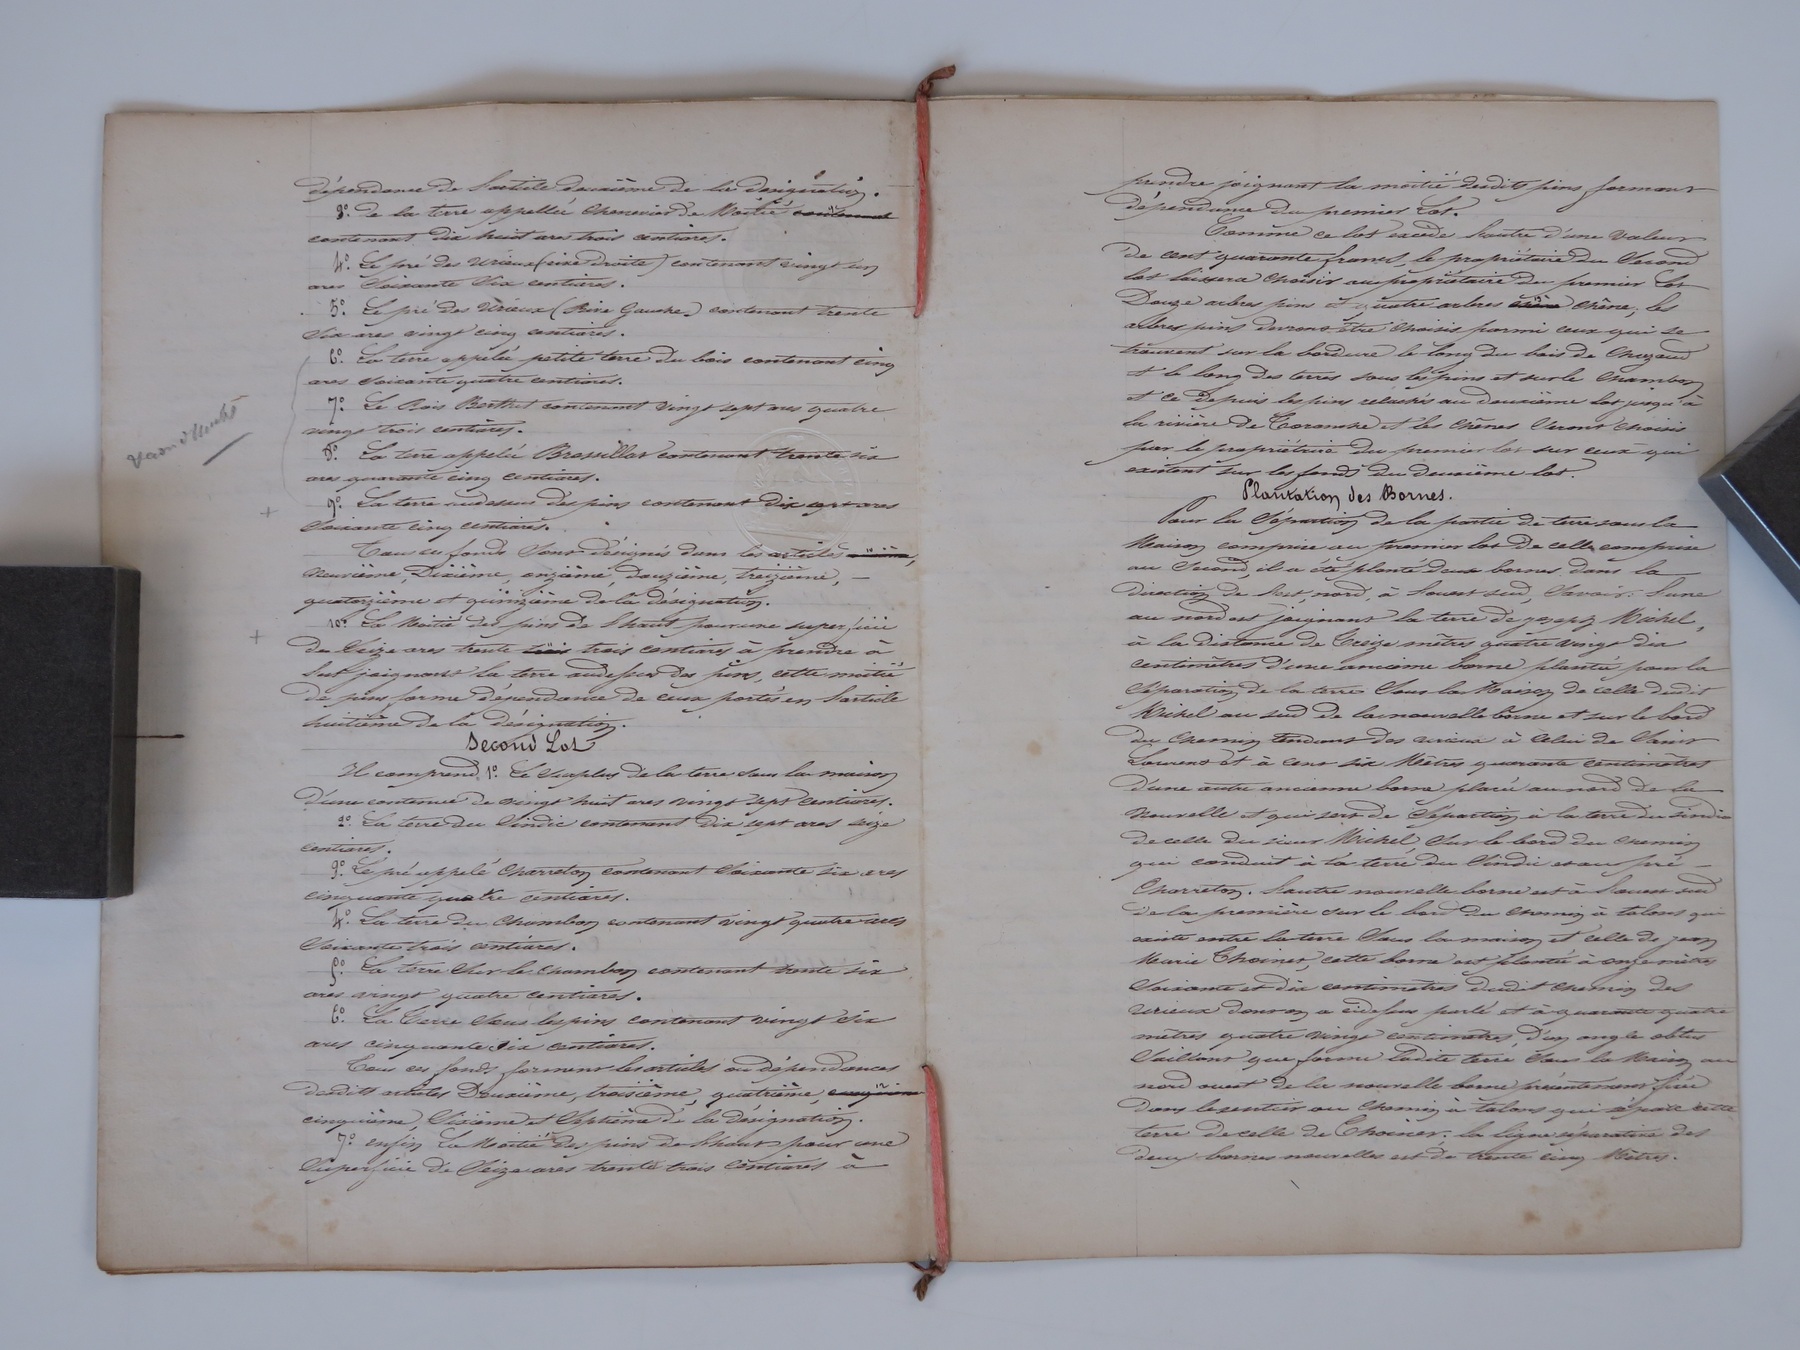 dépendance de l'article deuxième de la désignation.
3º. de la terre appellée Chenevier de Moitié contenant
contenant dix huit ares trois centiares.
4º. Le pré des Urieux (rive droite) contenant vingt un
ares Soixante dix centiares.
5º. Le pré des Urieux (Rive Gauche) contenant trente
six ares vingt cinq centiares.
6º. La terre appelée petite terre du bois contenant cinq
ares soixante quatre centiares.
7º. Le Bois Berthet contenant vingt sept ares quatre
vingt trois centiares.
8º. La terre appelée Bressillat contenant trente six
ares quarante cinq centiares.
9º. La terre audessus des pins contenant dix sept ares
Soixante cinq centiares.
Tous ces fonds sont désignés dans les articles
neuvième, Dixième, onzième, douzième, treizième, —
quatorzième et quinzième de la désignation.
10º. La Moitié des pins de Lhaut pour une superficie
de Seize ares trente trois trois centiares à prendre à
Lest joignant la terre audessus des pins, cette moitié
de pins forme dépendance de ceux portés en l'article
huitième de la désignation.
Second Lot
Il comprend 1º. Le surplus de la terre sous la maison
d'une contenue de vingt huit ares vingt sept centiares.
2º. La terre du Sindic contenant dix sept ares seize
centiares.
3º. Le pré appelé Charreton contenant Soixante six ares
cinquante quatre centiares.
4º. La terre du Chambon contenant vingt quatre ares
Soixante trois centiares.
5º. La terre Sur le Chambon contenant trente six
ares vingt quatre centiares.
6º. La Terre Sous les pins contenant vingt six
ares cinquante six centiares.
Tous ces fonds forment les articles ou dépendances
desdits articles Deuxième, troisième, quatrième, cinquième
cinquième, Sixième et Septième de la désignation.
7º. enfin La Moitié des pins de Lhaut pour une
Superficie de Seize ares trente trois centiares à
prendre joignant la moitié desdits pins formant
dépendance du premier Lot.
Comme ce lot excède l'autre d'une valeur
de cent quarante francs, le propriétaire du Second
Lot laissera choisir au propriétaire du premier Lot
Douze arbres pins et quatre arbres chêne, les
arbres pins devront être choisis parmi ceux qui se
trouvent sur la bordure le long du bois de Chazaud
et le long des terres sous les pins et sur le Chambon
et ce depuis les pins relachés au deuxième Lot jusqu'à
la rivière de Coranche et les chênes Seront choisis
par le propriétaire du premier lot sur ceux qui
existent sur les fonds du deuxième lot.
Plantation des Bornes.
Pour la Séparation de la partie de terre sous la
Maison comprise au premier lot de celle comprise
au Second, il a été planté deux bornes dans la
direction de l'est, nord, à Louest sud, Savoir: l'une
au nord est joignant la terre de joseph Michel,
à la distance de Treize mètres quatre vingt dix
centimètres d'une ancienne borne plantée pour la
Séparation de la terre Sous la Maison de celle dudit
Michel au sud de la nouvelle borne et sur le bord
du chemin tendant des urieux à celui de Saint
Laurent et à cent six Mètres quarante centimètres
d'une autre ancienne borne placée au nord de la
nouvelle et qui sert de Séparation à la terre du sindic
de celle du sieur Michel Sur le bord du chemin
qui conduit à la terre du Sindic et au pré —
Charreton. L'autre nouvelle borne est à Louest sud
de la première sur le bord du chemin à talons qui
existe entre la terre Sous la maison et celle de jean
Marie Thoinet, cette borne est plantée à onze mètres
Soixante et dix centimètres dudit chemin des
urieux dont on a cidessus parlé et à quarante quatre
mètres quatre vingt centimètres d'un angle obtus
Saillant que forme ladite terre Sous la Maison au
nord ouest de la nouvelle borne présentement fixée
dans le sentier ou chemin à talons qui sépare cette
terre de celle de Thoinet. la ligne séparative des
deux bornes nouvelles est de trente cinq Mètres.